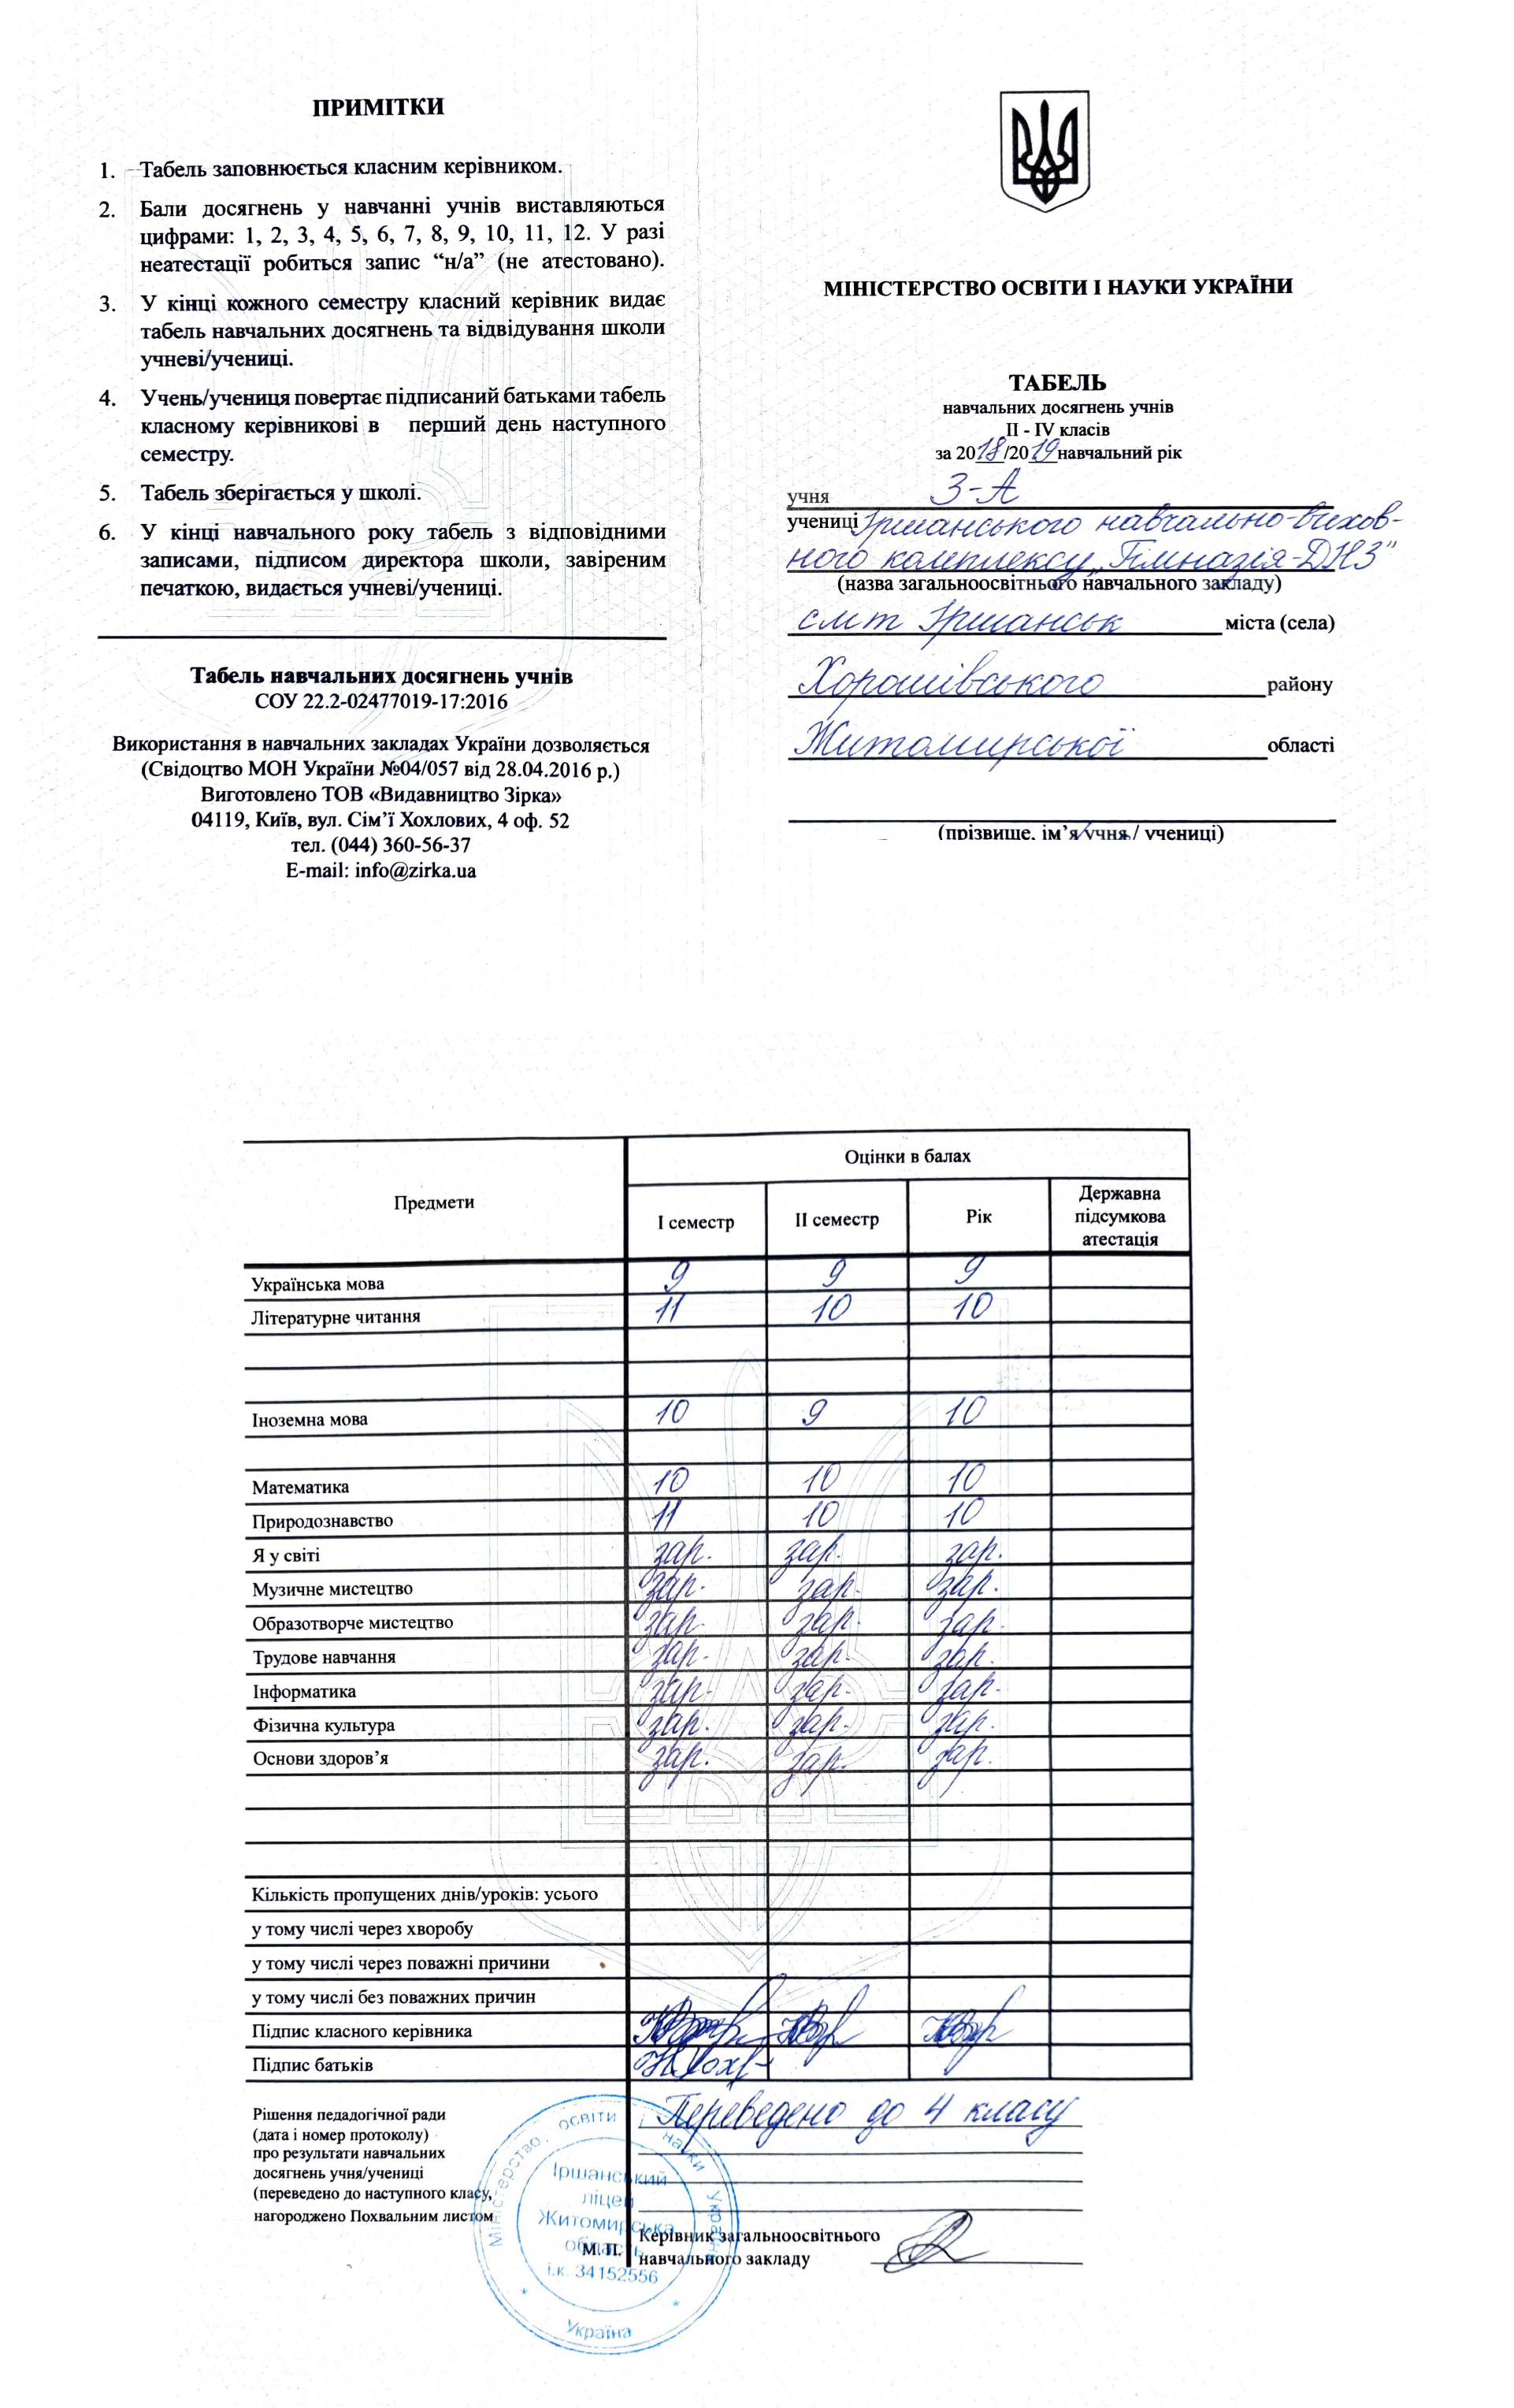 ПРИМІТКИ
1. Табель заповнюється класним керівником.
2. Бали досягнень у навчанні учнів виставляються
цифрами: 1, 2, 3, 4, 5, 6, 7, 8, 9, 10, 11, 12. У разі
неатестації робиться запис “н/а” (не атестовано).
3. У кінці кожного семестру класний керівник видає
табель навчальних досягнень та відвідування школи
учневі/учениці.
4. Учень/учениця повертає підписаний батьками табель
класному керівникові в перший день наступного
семестру.
5. Табель зберігається у школі.
6. У кінці навчального року табель з відповідними
записами, підписом директора школи, завіреним
печаткою, видається учневі/учениці.
Табель навчальних досягнень учнів
СОУ 22.2-02477019-17:2016
Використання в навчальних закладах України дозволяється
(Свідоцтво МОН України №04/057 від 28.04.2016 р.)
Виготовлено ТОВ «Видавництво Зірка»
04119, Київ, вул. Сім’ї Хохлових, 4 оф. 52
тел. (044) 360-56-37
E-mail: info@zirka.ua
МІНІСТЕРСТВО ОСВІТИ І НАУКИ УКРАЇНИ
ТАБЕЛЬ
навчальних досягнень учнів
II - IV класів
за 2018/2019 навчальний рік
учня 3-А
учениці Іршанського навчально-вихов-
ного комплексу „Гімназія-ДНЗ”
(назва загальноосвітнього навчального закладу)
смт Іршанськ міста (села)
Хорошівського району
Житомирської області
(прізвище, ім’я учня / учениці)
Предмети Оцінки в балах
І семестр ІІ семестр Рік Державна підсумкова атестація
Українська мова 9 9 9
Літературне читання 11 10 10
Іноземна мова 10 9 10
Математика 10 10 10
Природознавство 11 10 10
Я у світі зар. зар. зар.
Музичне мистецтво зар. зар. зар.
Образотворче мистецтво зар. зар. зар.
Трудове навчання зар. зар. зар.
Інформатика зар. зар. зар.
Фізична культура зар. зар. зар.
Основи здоров’я зар. зар. зар.
Кількість пропущених днів/уроків: усього
у тому числі через хворобу
у тому числі через поважні причини
у тому числі без поважних причин
Підпис класного керівника
Підпис батьків
Рішення педагогічної ради
(дата і номер протоколу)
про результати навчальних
досягнень учня/учениці
(переведено до наступного класу,
нагороджено Похвальним листом
Переведено до 4 класу
М. П.
Керівник загальноосвітнього
навчального закладу
Міністерство освіти і науки України
Іршанський
ліцей
Житомирська
область
і.к. 34152556
Україна